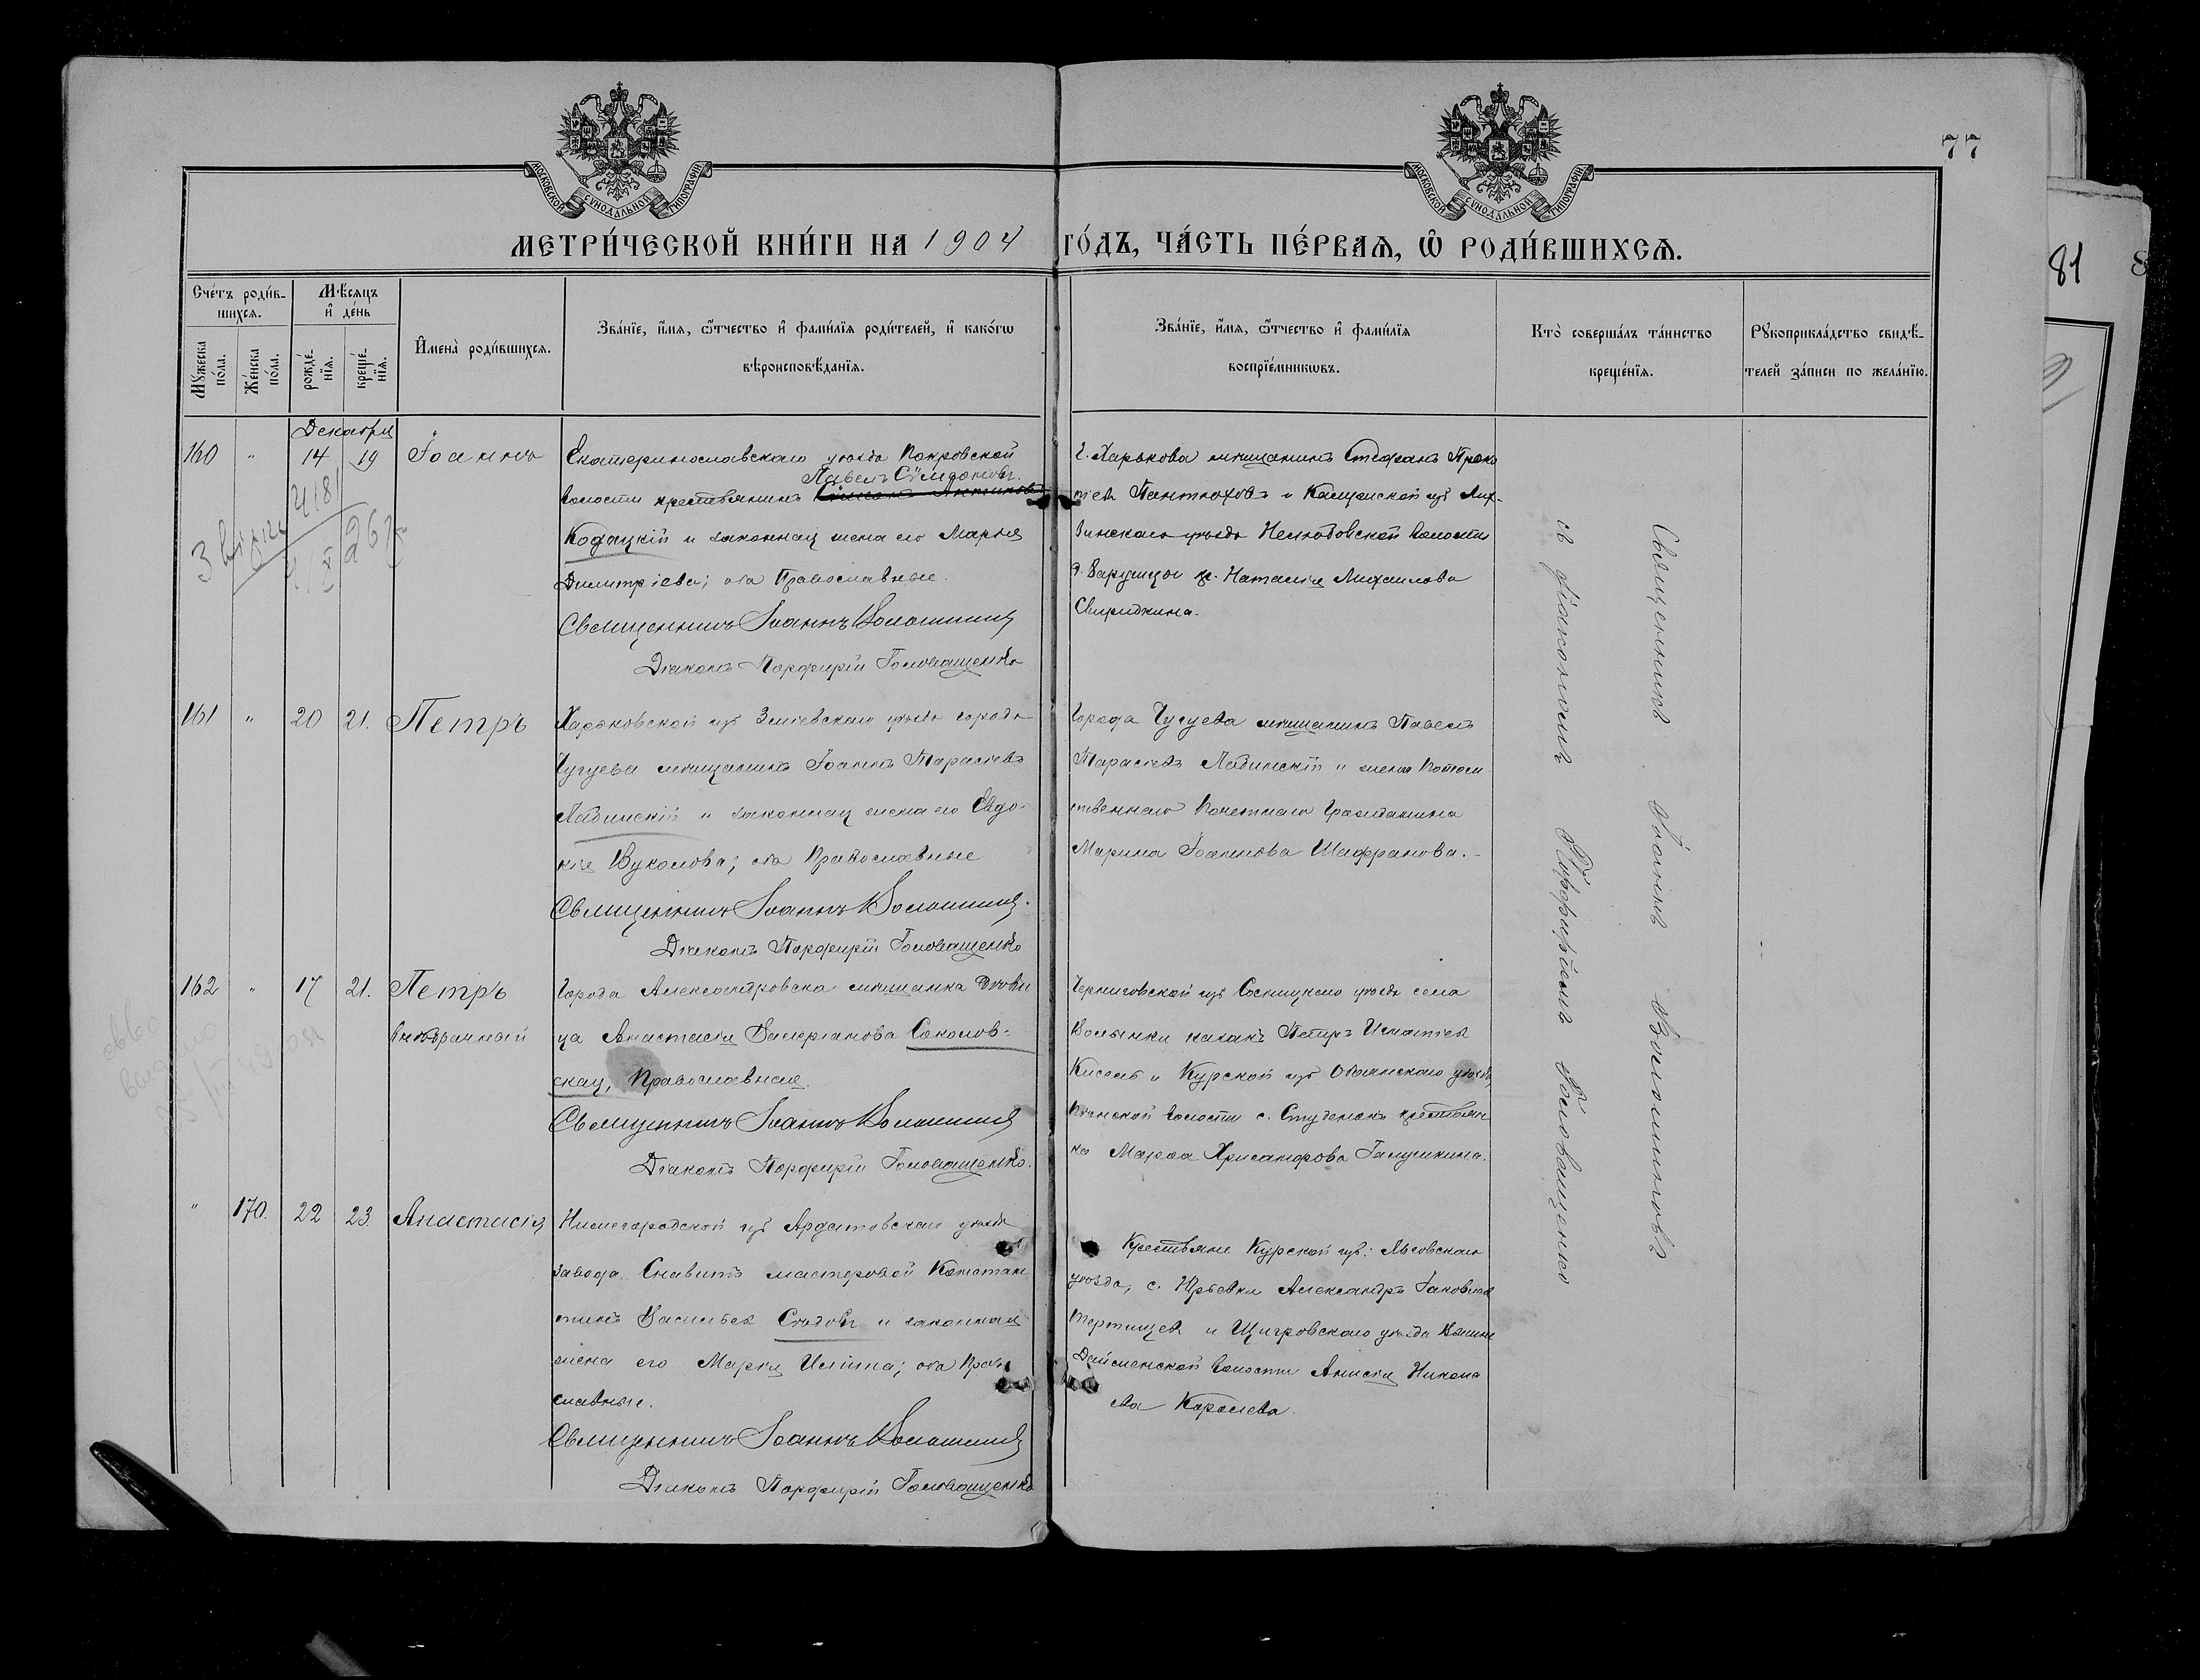 77
МОСКОВСКОЙ СѴНОДАЛЬНОЙ ТИПОГРАФІИ
МОСКОВСКОЙ СѴНОДАЛЬНОЙ ТИПОГРАФІИ
МЕТРИ́ЧЕСКОЙ КНИ́ГИ НА 1904 ГО́ДЪ, ЧА́СТЬ ПЕ́РВАЯ, Ѡ҆ РОДИ́ВШИХСЯ.
Сче́тъ роди́в-
шихся.
Мѣ́сяцъ
и҆ де́нь
Мꙋ́жеска по́ла.
Же́нска по́ла.
рожде́-
нїя.
креще́-
нїя.
И҆мена̀ роди́вшихся.
Зва́нїе, и҆́мя, ѻ҆́тчество и҆ фами́лїя роди́телей, и҆ како́гѡ
вѣроисповѣ́данїя.
Зва́нїе, и҆́мя, ѻ҆́тчество и҆ фами́лїя
воспрїе́мникѡвъ.
Кто̀ соверша́лъ та́инство
креще́нїя.
Рꙋкоприкла́дство свидѣ́-
телей за́писи по жела́нїю.
Декабря
160 " 14 19 Іоаннъ
Екатеринославскаго уѣзда Покровской
Павелъ Сѵмдоновъ
волости крестьянинъ
Кодацкій и законная жена его Марья
Димитріева; оба Православные.
Священникъ Іоаннъ Волошинъ
Діаконъ Порфирій Головащенко
Г. Харькова мѣщанинъ Стефанъ Проко
Пантюховъ и Калужской губ. Лих-
винскаго уѣзда волости
Наталія Михаилова
Свиридкина.
161 " 20 21. Петръ
Харьковской губ Зміевскаго уѣзда города
Чугуева мѣщанинъ Іоаннъ Тарасіевъ
Лабинскій и законная жена его Евдо-
кія Вуколова; оба Православные
Священникъ Іоаннъ Волошинъ.
Діаконъ Порфирій Головащенко
Города Чугуева мѣщанинъ Павелъ
Тарасіевъ Лабинскій и жена Потом
ственнаго Почетнаго Гражданина
Марина Іоаннова Шафранова.
162 " 17 21. Петръ
внѣбрачный
Города Александровска мѣщанка Дѣви
ца Анастасія Валеріанова Соколов-
ская, Православная.
Священникъ Іоаннъ Волошинъ
Діаконъ Порфирій Головащенко.
Черниговской губ Сосницкаго уѣзда села
Волынки казакъ Петръ Игнатіев
Кисель и Курской губ Обоянскаго уѣзда
волости с. Студенокъ крестьян
ка Марѳа Хрисанфова Галушкина.
" 170. 22 23. Анастасія
Нижегородской губ Ардатовскаго уѣзда
завода мастеровой Констан
тинъ Васильев Сѣдовъ и законная
жена его Марія Ильина; оба Право
славные.
Священникъ Іоаннъ Волошинъ
Діаконъ Порфирій Головащенко
Крестьяне Курской губ: Льговскаго
уѣзда, с. Юрьевки Александръ Іаковлев
Тертищев и Щигровскаго уѣзда Вышне
Дайменской волости Анисія Никола
ева Королева.
Священникъ Іоаннъ Волошиновъ
съ діакономъ Порфиріемъ Головащенко
81